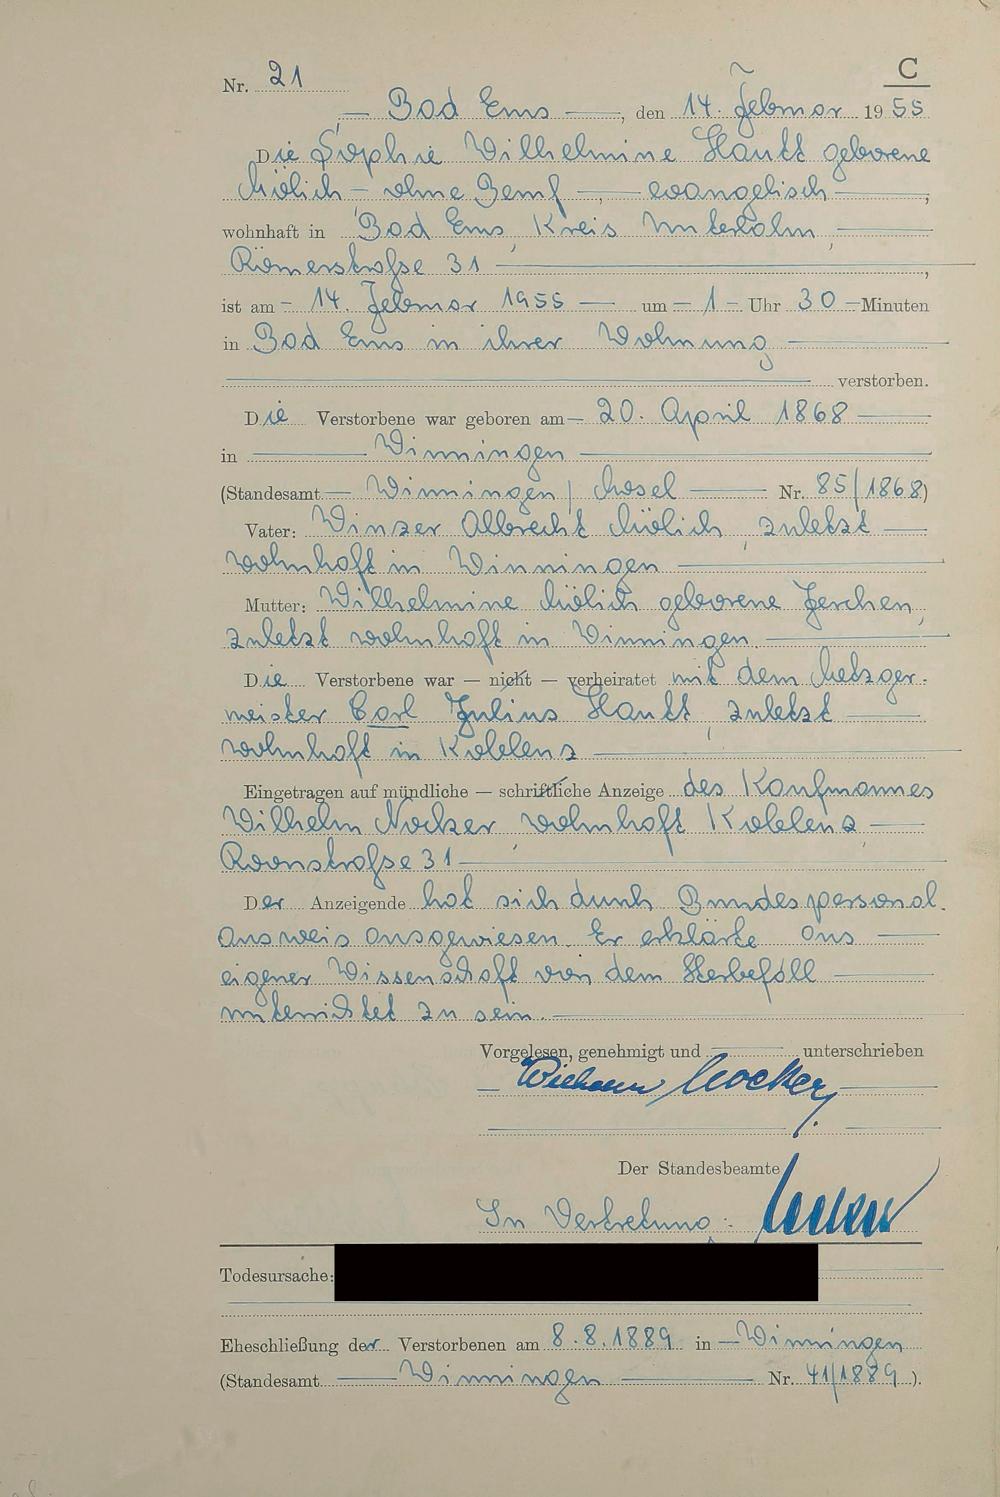 C
Nr. 21
— Bad Ems —, den 14. Februar 1955
Die Sophie Wilhelmine Hautt geborene
Mölich – ohne Beruf —, evangelisch —,
wohnhaft in Bad Ems, Kreis Unterlahn,
Römerstraße 31 —,
ist am – 14. Februar 1955 — um – 1 – Uhr 30 – Minuten
in Bad Ems in ihrer Wohnung —
— verstorben.
Die Verstorbene war geboren am – 20. April 1868 —
in — Winningen —
(Standesamt — Winningen / Mosel — Nr. 85/1868)
Vater: Winzer Albrecht Mölich, zuletzt —
wohnhaft in Winningen —
Mutter: Wilhelmine Mölich geborene Ferchen,
zuletzt wohnhaft in Winningen. —
Die Verstorbene war — nicht — verheiratet mit dem Metzger-
meister Carl Julius Hautt, zuletzt —
wohnhaft in Koblenz —
Eingetragen auf mündliche — schriftliche Anzeige des Kaufmannes
Wilhelm Nocker, wohnhaft Koblenz, —
Roonstraße 31 —
Der Anzeigende hat sich durch Bundespersonal-
ausweis ausgewiesen. Er erklärte aus —
eigener Wissenschaft von dem Sterbefall —
unterrichtet zu sein. —
Vorgelesen, genehmigt und — unterschrieben
— Wilhelm Nocker —
Der Standesbeamte
In Vertretung:
Todesursache:
Eheschließung der Verstorbenen am 8.8.1889 in — Winningen
(Standesamt — Winningen — Nr. 41/1889).